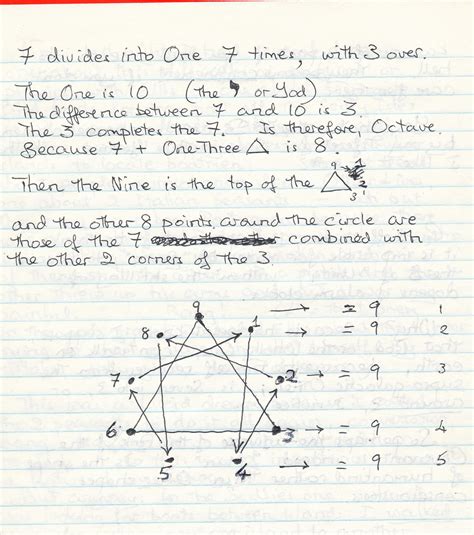 7 divides into One 7 times, with 3 over.
The One is 10 (the , or Yod)
The difference between 7 and 10 is 3.
The 3 completes the 7. Is therefore, Octave.
Because 7 + One-Three △ is 8.
Then the Nine is the top of the △ 9 1 2 3
and the other 8 points, around the circle are
those of the 7 combined with
the other 2 corners of the 3
9 → = 9 1
8 1 → = 9 2
7 2 → = 9 3
6 3 → = 9 4
5 4 → = 9 5